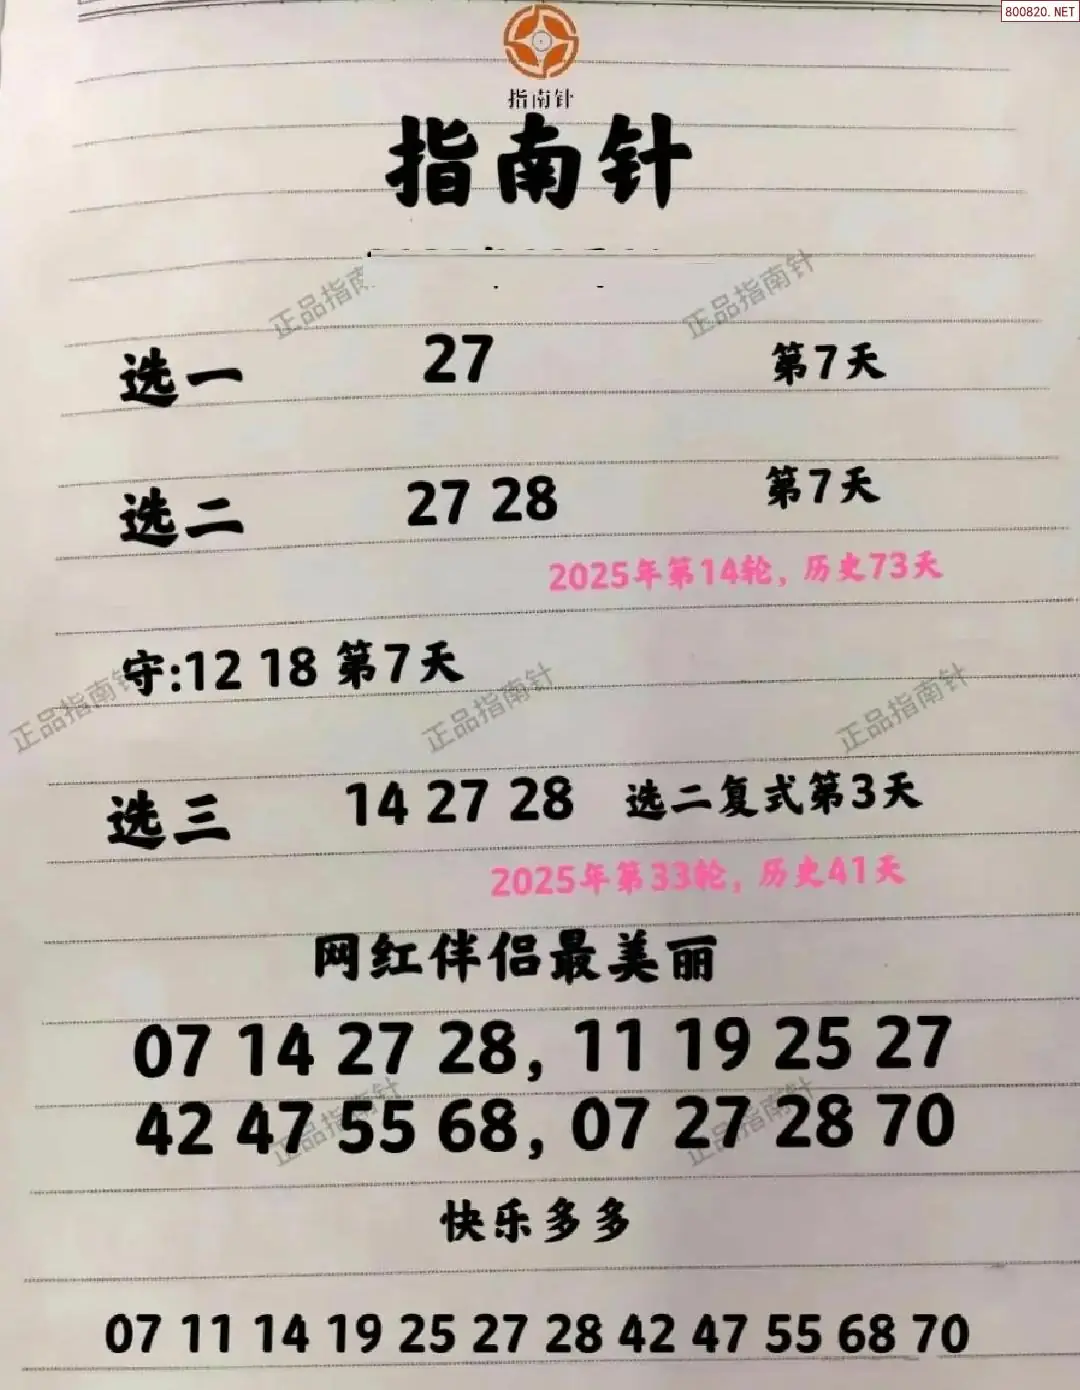 800820.NET
指南针
指南针
正品指南
正品指南针
选一 27 第7天
选二 27 28 第7天
2025年第14轮，历史73天
守:12 18 第7天
正品指南针
正品指南针
正品指南针
选三 14 27 28 选二复式第3天
2025年第33轮，历史41天
网红伴侣最美丽
07 14 27 28, 11 19 25 27
42 47 55 68, 07 27 28 70
正品指南针
正品指南针
快乐多多
07 11 14 19 25 27 28 42 47 55 68 70